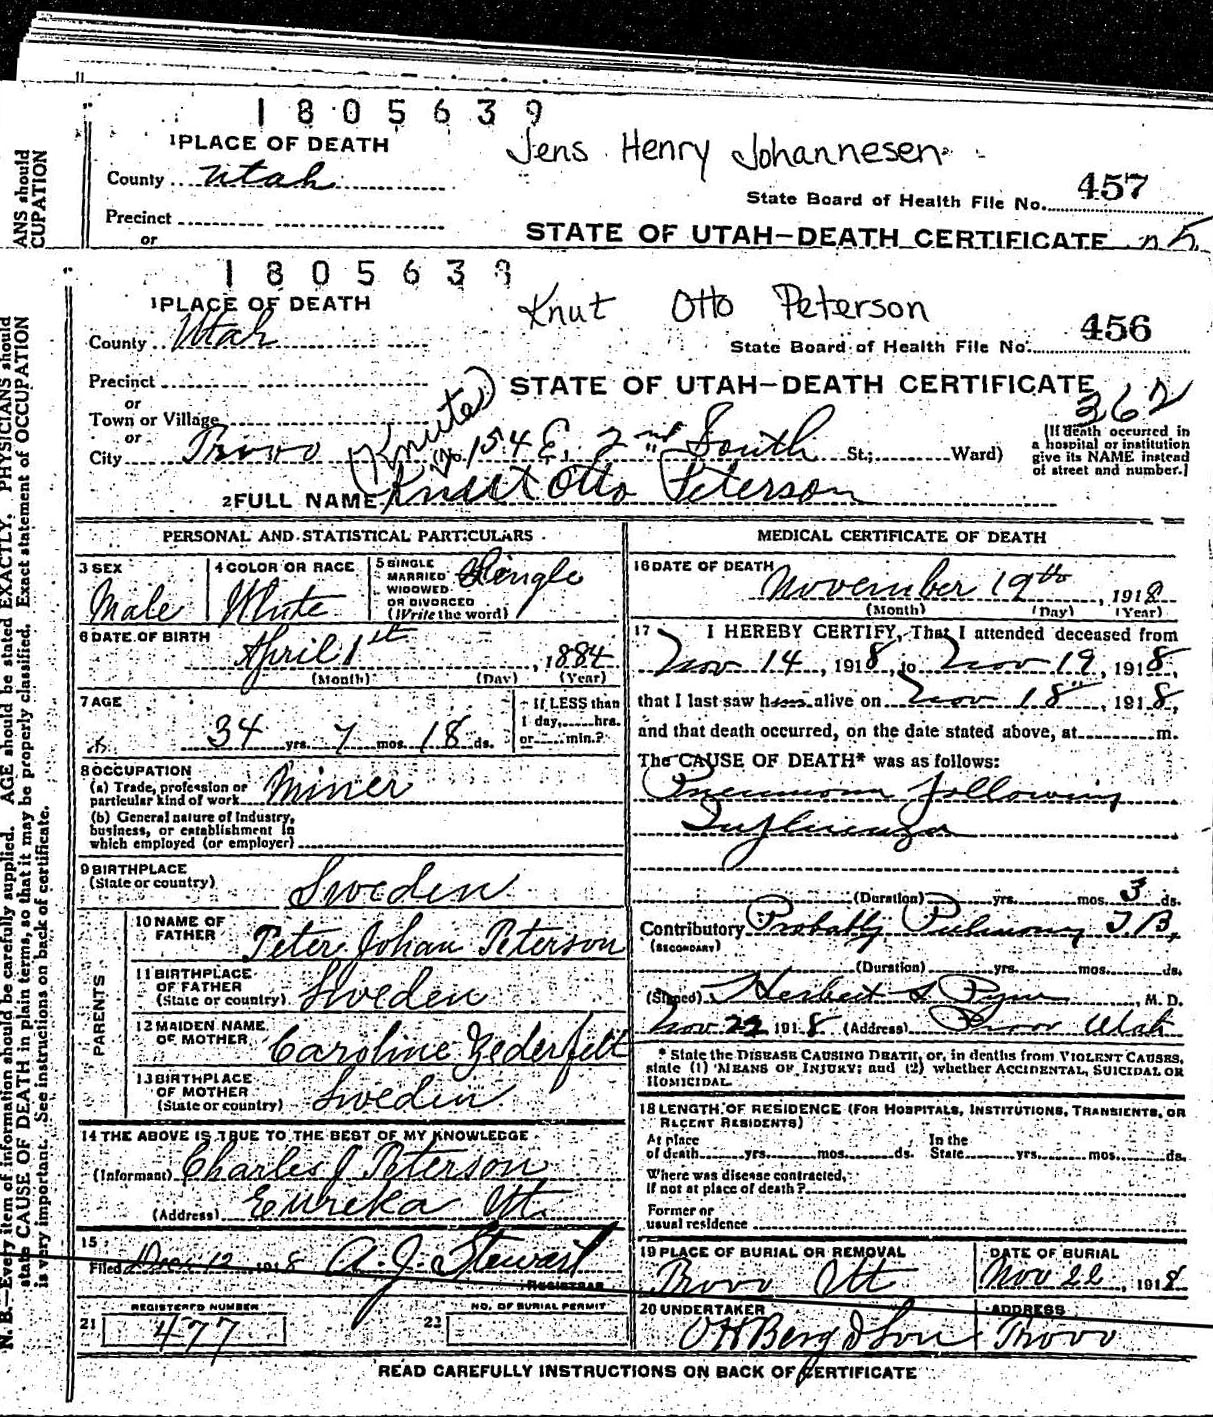 1805639
1PLACE OF DEATH
Jens Henry Johannesen
County Utah
State Board of Health File No. 457
Precinct
or
STATE OF UTAH—DEATH CERTIFICATE
ANS should
CUPATION
1805639
1PLACE OF DEATH
Knut Otto Peterson
County Utah
State Board of Health File No. 456
Precinct
STATE OF UTAH—DEATH CERTIFICATE
or
Town or Village
362
or
City Provo (No. 154 E, 2nd South St.; Ward)
(If death occurred in
a hospital or institution
give its NAME instead
of street and number.)
(Knute)
2FULL NAME Knut Otto Peterson
PERSONAL AND STATISTICAL PARTICULARS
3 SEX
Male
4 COLOR OR RACE
White
5 SINGLE
MARRIED
WIDOWED
OR DIVORCED
(Write the word)
Single
6 DATE OF BIRTH
April 1st, 1884
(Month) (Day) (Year)
7 AGE
34 yrs. 7 mos. 18 ds.
If LESS than
1 day, hrs.
or min.?
8 OCCUPATION
(a) Trade, profession or
particular kind of work Miner
(b) General nature of Industry,
business, or establishment in
which employed (or employer)
9 BIRTHPLACE
(State or country) Sweden
PARENTS
10 NAME OF
FATHER Peter Johan Peterson
11 BIRTHPLACE
OF FATHER
(State or country) Sweden
12 MAIDEN NAME
OF MOTHER Caroline Zederfelt
13 BIRTHPLACE
OF MOTHER
(State or country) Sweden
14 THE ABOVE IS TRUE TO THE BEST OF MY KNOWLEDGE
(Informant) Charles J Peterson
(Address) Eureka Ut.
15
Filed Dec 12 1918 A. J. Stewart
REGISTRAR
REGISTERED NUMBER
21 477
NO. OF BURIAL PERMIT
22
MEDICAL CERTIFICATE OF DEATH
16 DATE OF DEATH
November 19th, 1918
(Month) (Day) (Year)
17 I HEREBY CERTIFY, That I attended deceased from
Nov 14, 1918, to Nov 19, 1918,
that I last saw him alive on Nov 18, 1918,
and that death occurred, on the date stated above, at m.
The CAUSE OF DEATH* was as follows:
Pneumonia following
Influenza
(Duration) yrs. mos. 3 ds.
Contributory Probably Pulmonary T B,
(SECONDARY)
(Duration) yrs. mos. ds.
(Signed) Herbert S Pyne, M. D.
Nov 22 1918 (Address) Provo Utah
* State the DISEASE CAUSING DEATH, or, in deaths from VIOLENT CAUSES,
state (1) MEANS OF INJURY; and (2) whether ACCIDENTAL, SUICIDAL OR
HOMICIDAL
18 LENGTH OF RESIDENCE (FOR HOSPITALS, INSTITUTIONS, TRANSIENTS, OR
RECENT RESIDENTS)
At place
of death yrs. mos. ds.
In the
State yrs. mos. ds.
Where was disease contracted,
if not at place of death?
Former or
usual residence
19 PLACE OF BURIAL OR REMOVAL
Provo Ut
DATE OF BURIAL
Nov 22, 1918
20 UNDERTAKER
O H Berg & Son
ADDRESS
Provo
READ CAREFULLY INSTRUCTIONS ON BACK OF CERTIFICATE
N. B.—Every item of information should be carefully supplied. AGE should be stated EXACTLY. PHYSICIANS should
state CAUSE OF DEATH in plain terms, so that it may be properly classified. Exact statement of OCCUPATION
is very important. See instructions on back of certificate.